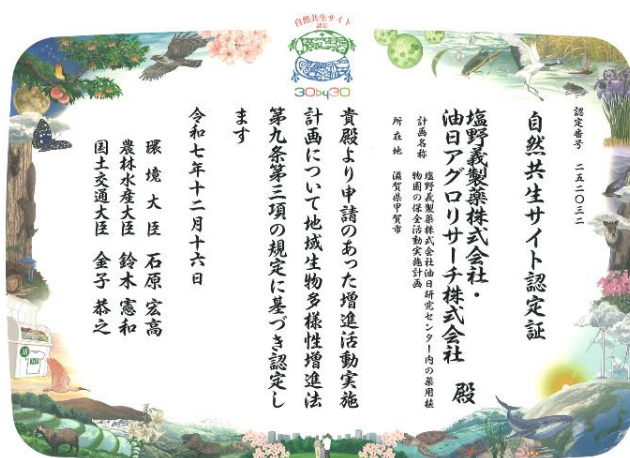 自然共生サイト
30by30
認定番号 二五二〇三二
自然共生サイト認定証
塩野義製薬株式会社・
油日アグロリサーチ株式会社 殿
計画名称 塩野義製薬株式会社油日研究センター内の薬用植
物園の保全活動実施計画
所在地 滋賀県甲賀市
貴殿より申請のあった増進活動実施
計画について地域生物多様性増進法
第九条第三項の規定に基づき認定し
ます
令和七年十二月十六日
環境大臣 石原宏高
農林水産大臣 鈴木憲和
国土交通大臣 金子恭之